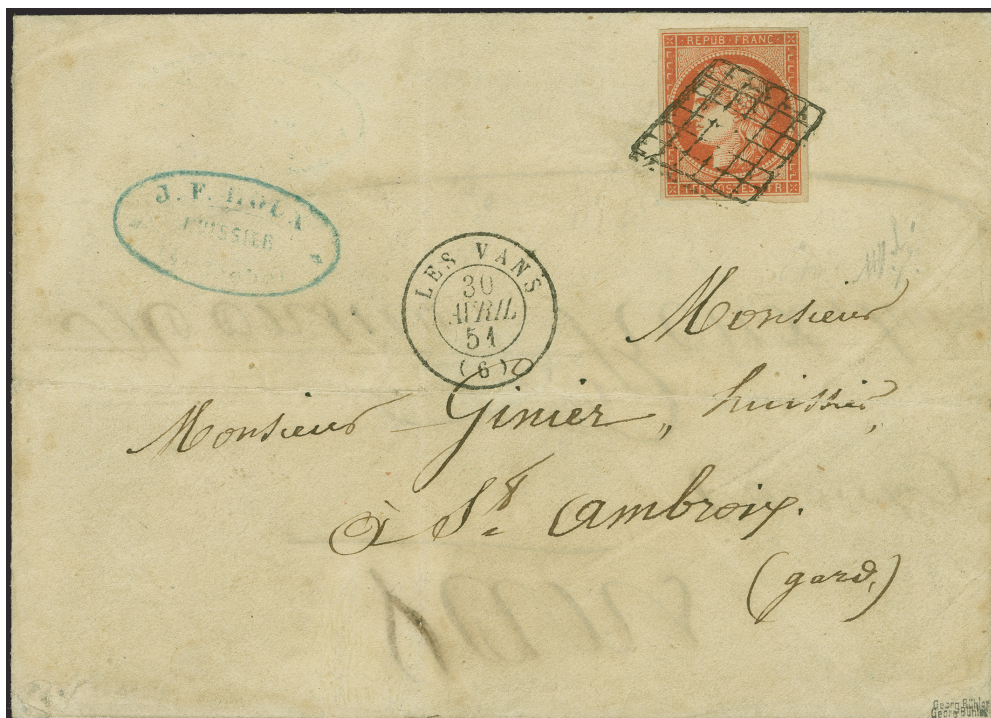 REPUB·FRANC·
J. F. ROUX
HUISSIER
LES VANS
30
AVRIL
51
(6)
Monsieur
Monsieur Ginier, huissier,
à St Ambroix.
(gard,)
Georg Bühler
Georg Bühler